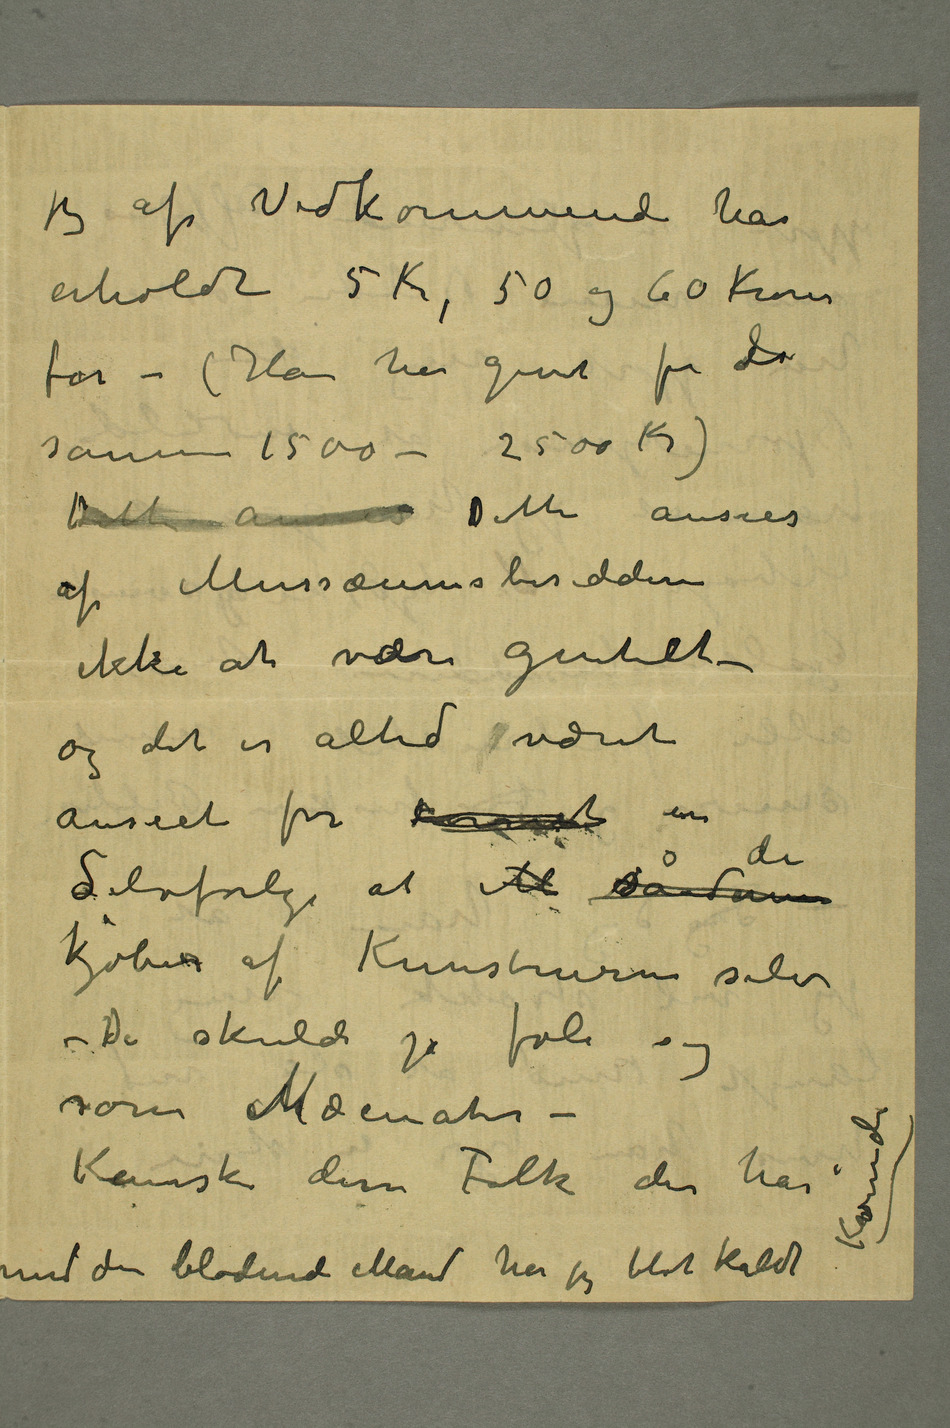 jeg af Vedkommende har
erholdt 5 Kr, 50 og 60 Kroner
for – (Han har givet for de
samme 1500 – 2500 Kr)
Dette ansees Dette ansees
af Mussæumsbesidderne
ikke at være gentilt –
og det er altid været
anseet for en
Selvfølge at de
kjøber af Kunstnerne selv
– De skulde jo føle sig
som Mæcenater –
Kanske disse Folk der har
med den blødende Mand har jeg blot kaldt
Kvinde)